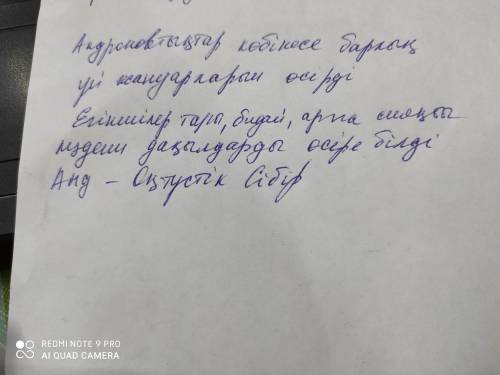 Андроновтықтар көбінесе барлық
үй жануарларын өсірді
Егіншілер тары, бидай, арпа сияқты
дақылдарды өсіре білді
Анд – Оңтүстік Сібір
REDMI NOTE 9 PRO
AI QUAD CAMERA